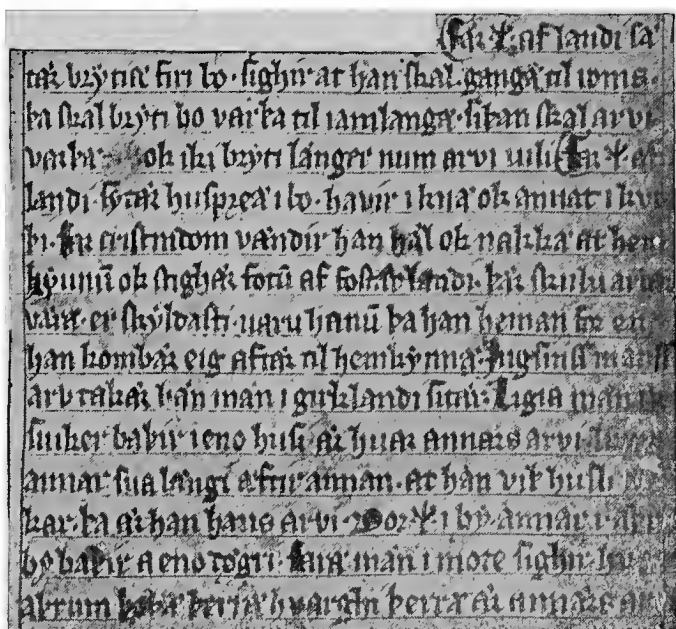 Far ᛘ af landi sæ
tær brytiæ firi bo. sighir at han skal ganga til roms.
þa skal bryti bo varþa til iamlanga. siþan skal arvi
varþa ok iki bryti længer num arvi uili Far ᛘ af
landi. sætær husprea i bo. havir i knæ ok annat i kvi
þi. Far cristindom vændir han hæl ok nakka at hem
kynum ok stighær fotum af fostærlandi. þær skulu arvær
væræ. er skyldasti. uaru hanum þa han heman for en
han kombær eig aftær til hemkynna. Ingsinss manss
arv takær þæn man i girklandi sitær. Ligia mæn
siuker baþir i eno husi. ær huar annars arvi. livir
annar sua længi æftir annan. at han viþ husli
kar. þa ær han hans arvi. Dör ᛘ i by annar i aþrum
by baþir a eno dögri. Fara mæn i mote sighir
aþrum þerræ hvarghin þerræ ær annars arvi